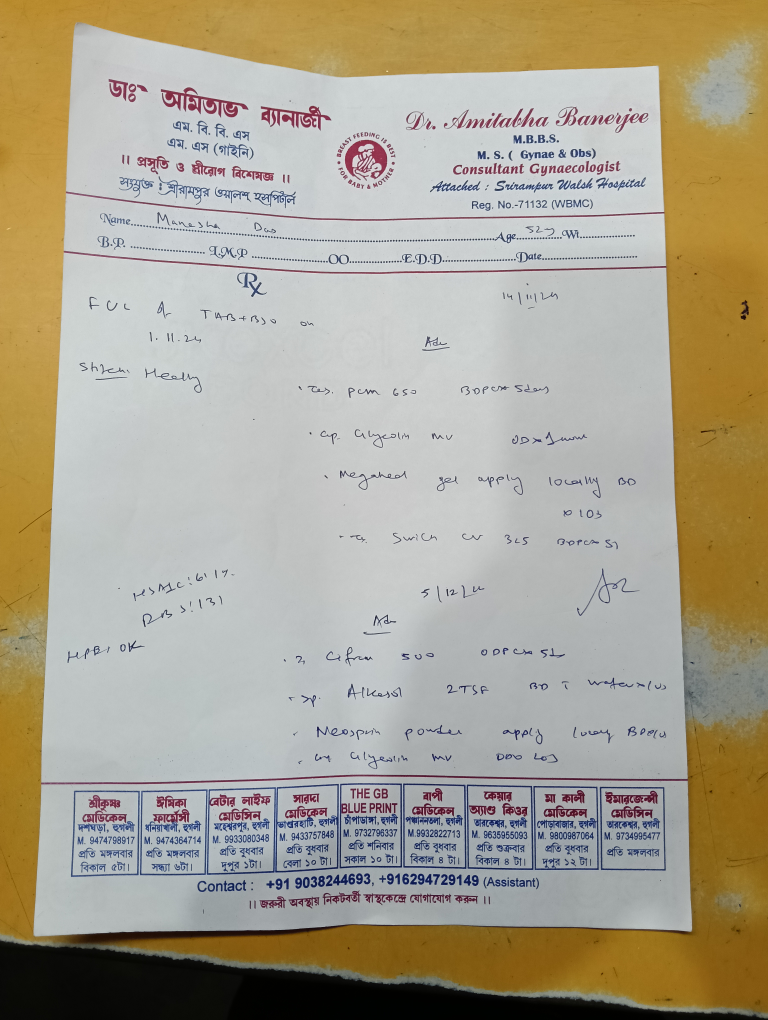 ডাঃ অমিতাভ ব্যানার্জী
এম. বি. বি. এস
এম. এস (গাইনি)
।। প্রসূতি ও স্ত্রীরোগ বিশেষজ্ঞ ।।
সংযুক্ত : শ্রীরামপুর ওয়ালশ হসপিটাল
BREAST FEEDING IS BEST
FOR BABY & MOTHER
Dr. Amitabha Banerjee
M.B.B.S.
M. S. ( Gynae & Obs)
Consultant Gynaecologist
Attached : Srirampur Walsh Hospital
Reg. No.-71132 (WBMC)
Name Manesha Das Age 52y Wt
B.P. L.M.P OO E.D.D Date
Rx
14/11/24
FUC of TAH+BSO on
1.11.24
Adv
Stitch: Healthy
Tab. PCM 650 BDPC x 5days
Cap. Glycolin MV OD x 1
Megaheal gel apply locally BD
x 10d
CV 325 BDPC x 5d
HBA1C: 6.1%
RBS: 131
5/12/24
Adv
HPE: OK
500 ODPC x 5d
Syp. Alkasol 2TSF BD water
Neosprin powder apply
Glycolin MV
শ্রীকৃষ্ণ মেডিকেল
দশঘড়া, হুগলী
M. 9474798917
প্রতি মঙ্গলবার
বিকাল ৫টা।
ঈষিকা ফার্মেসী
ধনিয়াখালী, হুগলী
M. 9474364714
প্রতি মঙ্গলবার
সন্ধ্যা ৬টা।
বেটার লাইফ মেডিসিন
মহেশ্বরপুর, হুগলী
M. 9933080348
প্রতি বুধবার
দুপুর ১টা।
সারদা মেডিকেল
ভাণ্ডারহাটি, হুগলী
M. 9433757848
প্রতি বুধবার
বেলা ১০ টা।
THE GB BLUE PRINT
চাঁপাডাঙ্গা, হুগলী
M. 9732796337
প্রতি শনিবার
সকাল ১০ টা।
বাপী মেডিকেল
পঞ্চাননতলা, হুগলী
M.9932822713
প্রতি বুধবার
বিকাল ৪ টা।
কেয়ার অ্যাণ্ড কিওর
তারকেশ্বর, হুগলী
M. 9635955093
প্রতি শুক্রবার
বিকাল ৪ টা।
মা কালী মেডিকেল
পোড়াবাজার, হুগলী
M. 9800987064
প্রতি বুধবার
দুপুর ১২ টা।
ইমারজেন্সী মেডিসিন
তারকেশ্বর, হুগলী
M. 9734995477
প্রতি মঙ্গলবার
Contact : +91 9038244693, +916294729149 (Assistant)
।। জরুরী অবস্থায় নিকটবর্তী স্বাস্থ্যকেন্দ্রে যোগাযোগ করুন ।।